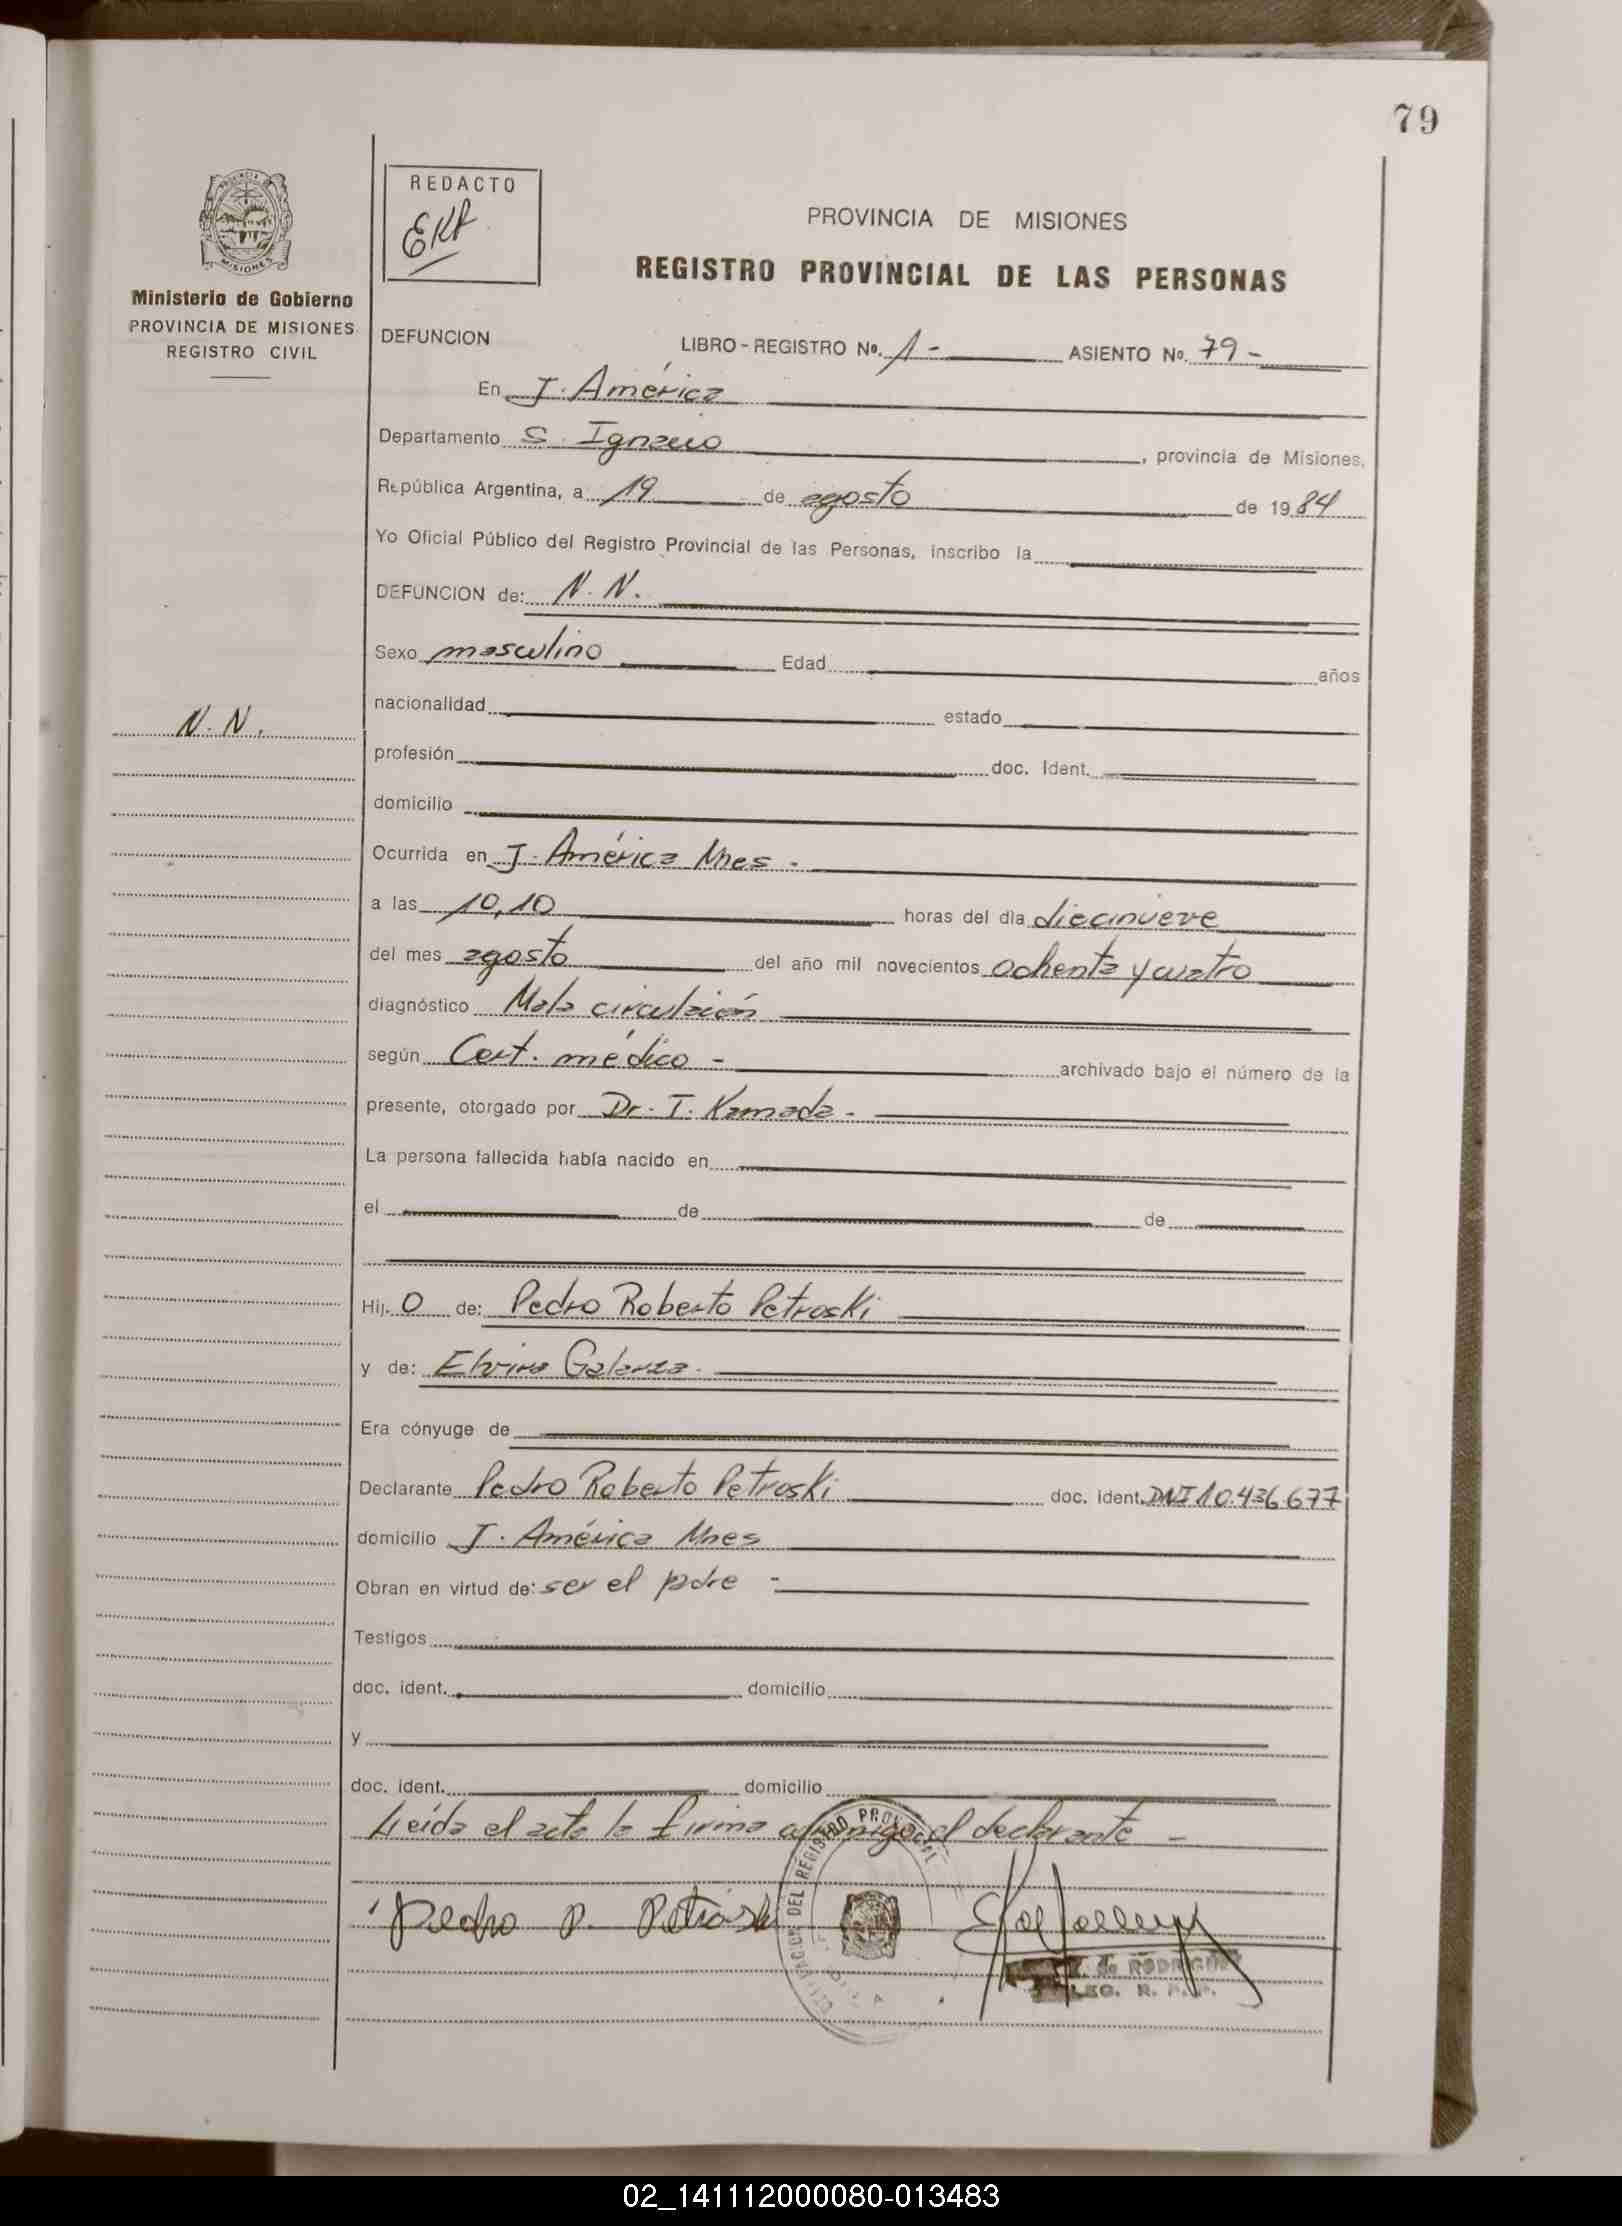 79
REDACTO
EKA
PROVINCIA DE MISIONES
REGISTRO PROVINCIAL DE LAS PERSONAS
PROVINCIA DE
MISIONES
Ministerio de Gobierno
PROVINCIA DE MISIONES
REGISTRO CIVIL
DEFUNCION LIBRO-REGISTRO Nº. 1- ASIENTO Nº. 79-
En J. América
Departamento S. Ignacio, provincia de Misiones,
República Argentina, a 19 de agosto de 1984
Yo Oficial Público del Registro Provincial de las Personas, inscribo la
DEFUNCION de: N. N.
Sexo masculino Edad años
N. N.
nacionalidad estado
profesión doc. Ident.
domicilio
Ocurrida en J. América Mnes -
a las 10,10 horas del día diecinueve
del mes agosto del año mil novecientos ochenta y cuatro
diagnóstico Mala circulación
según Cert. médico - archivado bajo el número de la
presente, otorgado por Dr. T. Kamada -
La persona fallecida había nacido en
el de de
Hij. O de: Pedro Roberto Petroski
y de: Elvira Galarza.
Era cónyuge de
Declarante Pedro Roberto Petroski doc. ident. DNI 10.436.677
domicilio J. América Mnes
Obran en virtud de: ser el padre -
Testigos
doc. ident. domicilio
y
doc. ident. domicilio
Leída el acta la firma conmigo el declarante -
DEL REGISTRO PROVINCIAL
Pedro R. Petroski
de RODRIGUE
02_141112000080-013483